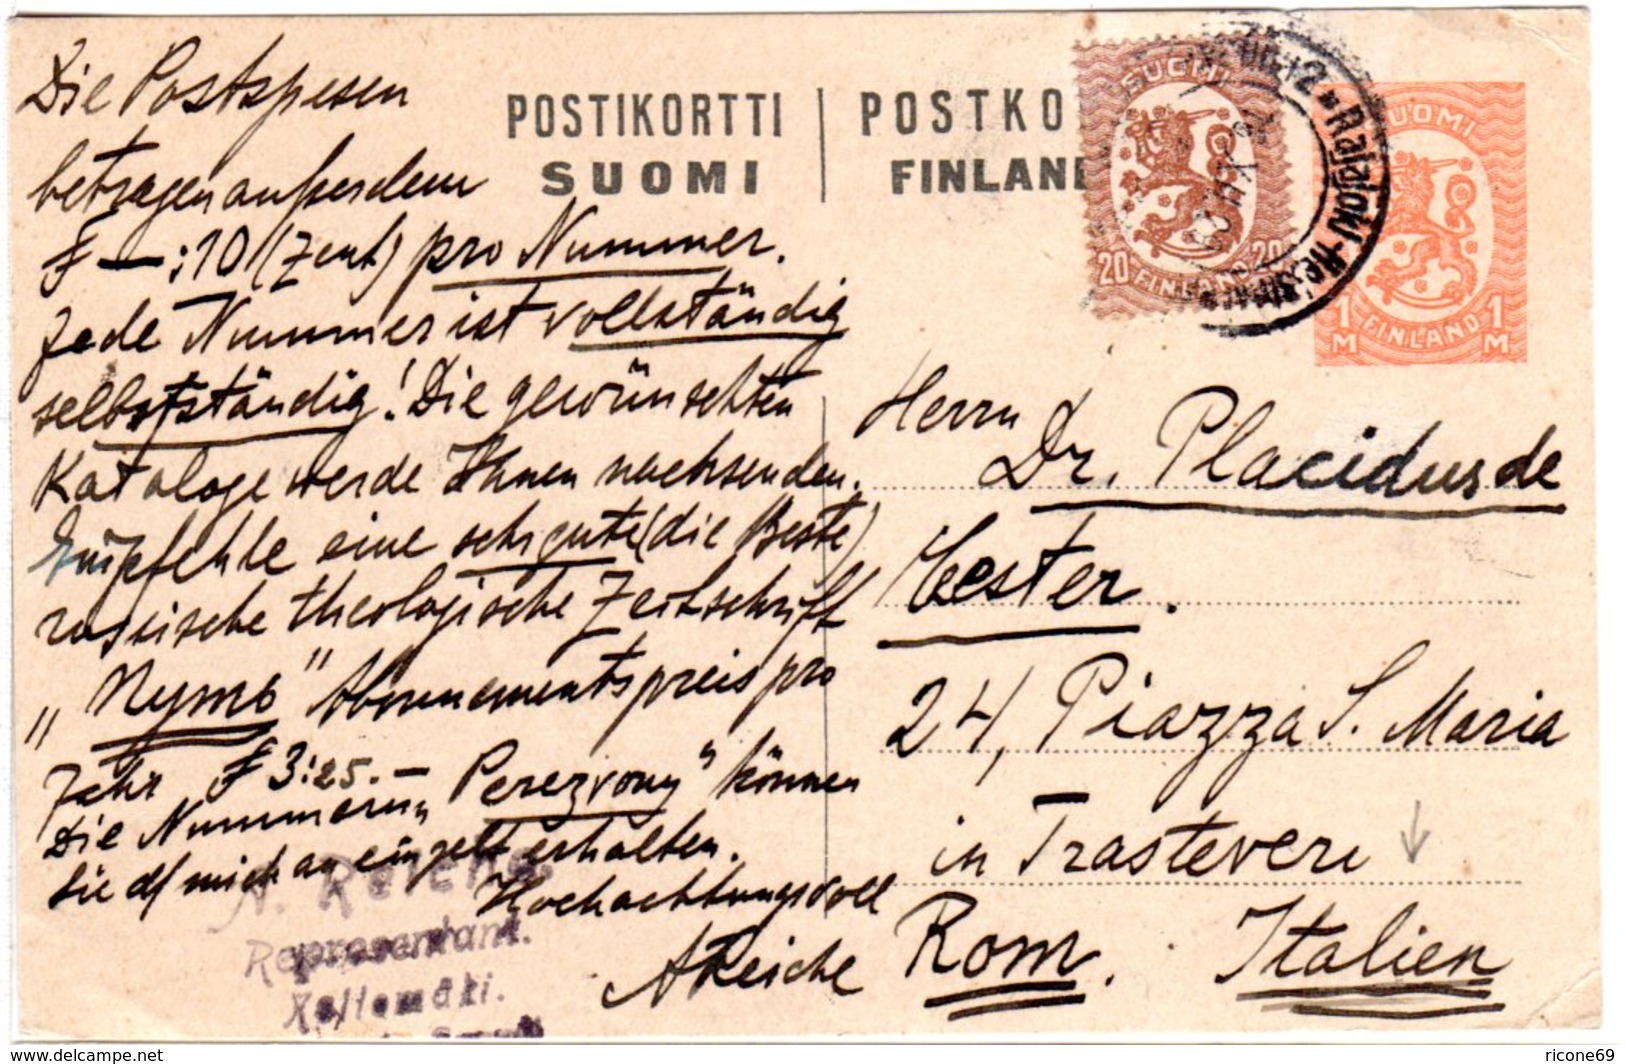 Die Postspesen
betragen außerdem
F —:10 (Zent) pro Nummer.
Jede Nummer ist vollständig
selbstständig! Die gewünschten
Kataloge werde Ihnen nachsenden.
Empfehle eine sehr gute (die Beste)
russische theologische Zeitschrift
„ "Abonnementspreis pro
Jahr F 3:25.—
Die Nummern „Perezvony" können
Sie d/ mich an erhalten.
Hochachtungsvoll
AReiche
POSTIKORTTI
SUOMI
POSTKO
FINLAN
SUOMI
20 20
FINLAND
Rajajoki-
SUOMI
1 1
M FINLAND M
Herrn
Dr. Placidus de
Meester.
24, Piazza S. Maria
in Trastevere
Rom. Italien
A. Reiche
Representant.
ricone69